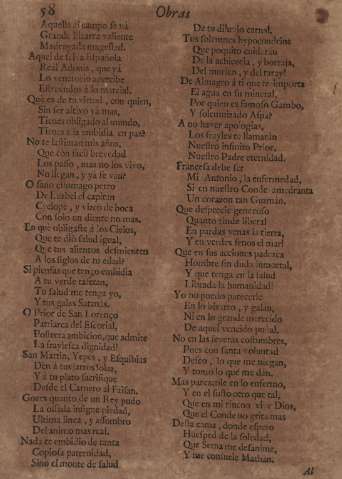 58
Obras
Aquella al campo se va
Grande bizarra valiente
Madrugada magestad.
Aquel de si la Española
Real Adonis, que ya
Lo venatorio apercibe
Estruendos a lo marcial.
Que es de tu virtud, con quien,
Sin ser altivo ya mas,
Tienes obligado al mundo,
Tienes a la embidia en paz?
No te lastiman mis años,
Que con facil brevedad
Los passo, mas no los vivo,
No llegan, y ya se van?
De Isabel el capitan
Cyclope, y vizco de boca
Con solo un diente no mas.
En que obligaste a los Cielos,
Que te diò salud igual,
Que tus alientos desmienten
A los siglos de tu edad?
Si piensas que tengo embidia
A tu verde
Tu salud me tenga yo,
Y tus galas Satanàs.
O Prior de San Lorenço
Patriarca del Escorial,
Postrera ambicion, que admite
La fraylesca dignidad!
San Martin, Yepes, y Esquibias
Den à tus jarros solaz,
Y à tu plato sacrifique
Desde el Carnero al Faisan.
Gozes quanto de un Rey pudo
La ossada insigne piedad,
Ultima linea, y assombro
Del animo mas real.
Nada te embidio de tanta
Copiosa paternidad,
Sino el monte de salud
De tu dibuxo carnal.
Tus solennes hypocondrias
Que poquito cuidaran
De la achicoria, y borraja,
Del
De Almagro à ti que te importa
El agua en su mineral,
Por quien es famoso Gambo,
Y solemnizado Aspa?
A no haver apologias,
Los frayles te llamaran
Nuestro infinito Prior,
Nuestro Padre eternidad.
Francesa debe ser
Mi Antonio, la enfermedad,
Si en nuestro Conde amedranta
Un corazon tan Guzmàn.
Que desprecie generoso
Quanto rinde liberal
En pardas venas la tierra,
Y en verdes senos el mar!
Que en sus acciones padezca
Hombre sin duda inmortal,
Y que tenga en la salud
Librada la humanidad!
Yo no puedo parecerle
En lo bizarro, y galàn,
Ni en lo grande merecido
De aquel vencido pu
No en las severas costumbres,
Pues con santa voluntad
Desseo, lo que me niegan,
Y tomo lo que me dàn.
Mas parezcale en lo enfermo,
Y en el susto otro que tal,
Que en mi rincon vive Dios,
Que el Conde no grita mas
Desta cama, donde espero
Huesped de la soledad,
Que Sema me desanime,
Y me consuele Mathan.
Al